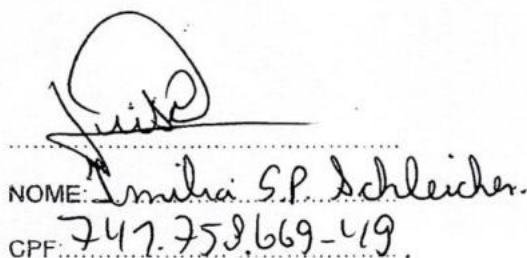 NOME: Emilia S.P. Schleicher.
CPF: 741.753.669-49.